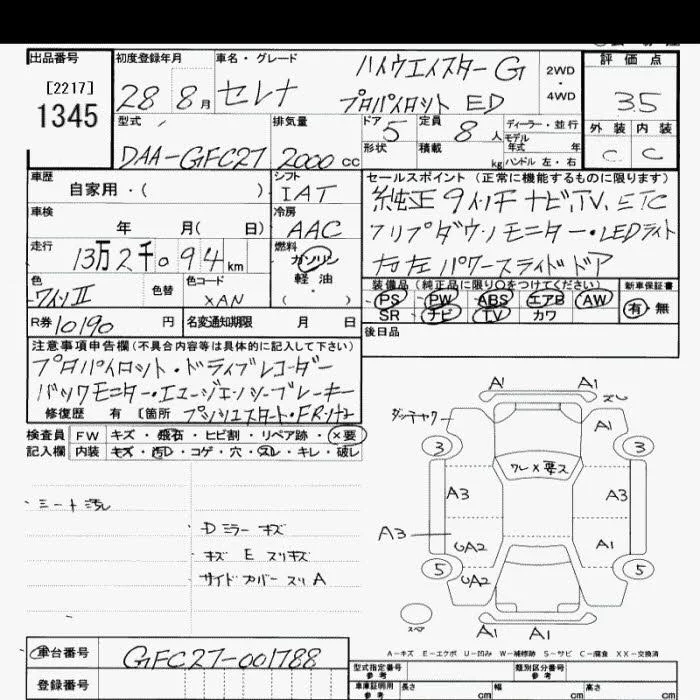 出品番号 初度登録年月 車名・グレード ハイウエイスター G 2WD・4WD 評価点
[2217]
1345 28 8月 セレナ プロパイロット ED 35
型式 排気量 ドア 5 定員 8人 ディーラー・並行 外装 内装
DAA-GFC27 2000cc 形状 積載 kg モデル年式 年 ハンドル 左・右 C C
車歴 シフト セールスポイント(正常に機能するものに限ります)
自家用・( ) IAT 純正9インチナビ、TV、ETC
車検 年 月( 日) 冷房 AAC フリップダウンモニター・LEDライト
走行 13万2千094km 燃料 ガソリン 軽油 ・( ) 右左パワースライドドア
色 色替 色コード 装備品(純正品に限り〇をつけてください) 新車保証書
ワインⅡ XAN PS PW ABS エアB AW 有・無
R券 10190円 名変通知期限 月 日 SR ナビ TV カワ
後日品
注意事項申告欄(不具合内容等は具体的に記入して下さい)
プロパイロット・ドライブレコーダー
バックモニター・エマージェンシーブレーキ
修復歴 有 [箇所 プッシュスタート・FRソナー
検査員 FW キズ・飛石・ヒビ割・リペア跡・×要
記入欄 内装 キズ・汚レ・コゲ・穴・スレ・キレ・破レ
・シート汚れ
・Dミラーキズ
キズEスリキズ
サイドカバースリA
A1 A1
ダッチャク A1
3 3
フレ×要ス
A3 A3
A3 UA2 A1
5 UA2 5
スペア A1 A1
A-キズ E-エクボ U-凹み W-補修跡 S-サビ C-腐食 XX-交換済
車台番号 GFC27-001788
登録番号
型式指定番号 参考 類別区分番号 参考
車庫証明用 参考 長さ cm 幅 cm 高さ cm